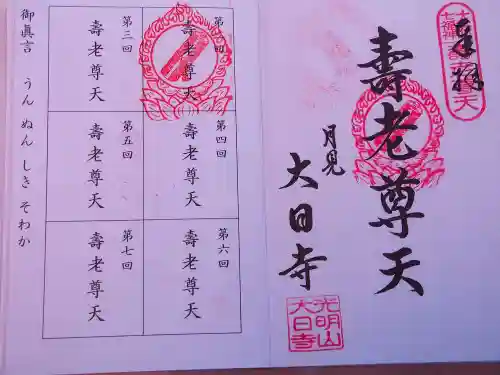 奉拝
壽老尊天
月見
大日寺
光明山
大日寺
第二回
壽老尊天
第三回
壽老尊天
第四回
壽老尊天
第五回
壽老尊天
第六回
壽老尊天
第七回
壽老尊天
御眞言　うん ぬん しき そわか